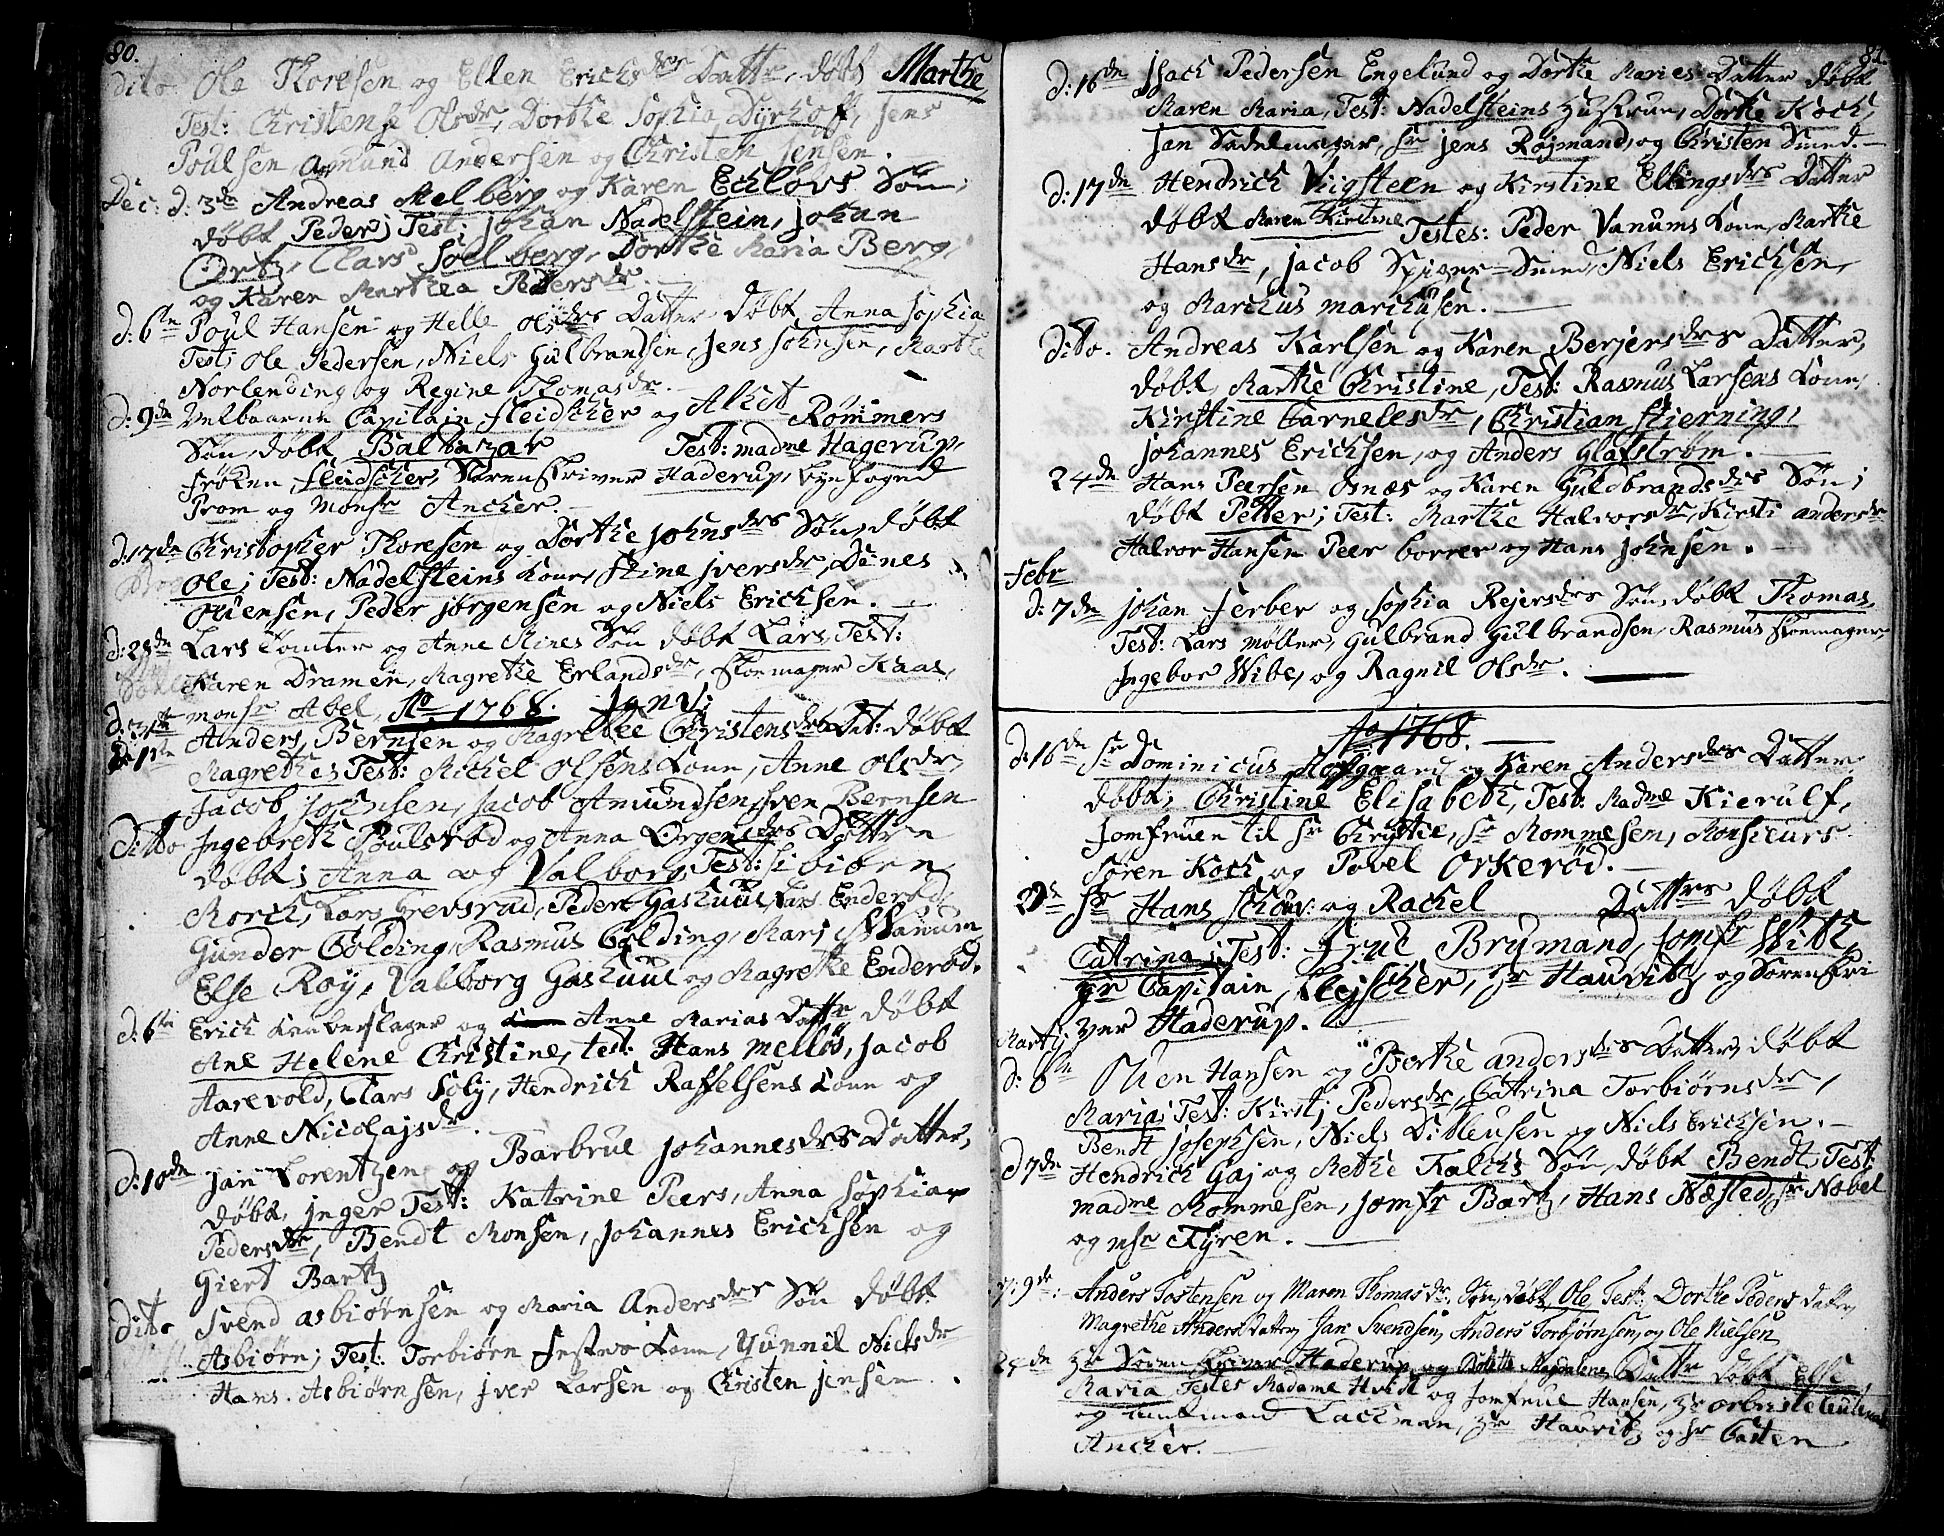 80.
dito. Ole Thoresen og Ellen Erichsdrs Dattr, døbt Marthe,
Test: Christense Olsdr, Dorthe Sophia Dyrhoff, Jens
Poulsen, Amund Andersen og Christen Jensen.
Dec: d: 3de Andreas Melberg og Karen Echløvs Søn,
døbt Peder; Test: Johan Nadelstein, Johan
Ortz, Clars Soelberg, Dorthe Maria Berg,
og Karen Marthea Pedersdr.
d: 6te Poul Hansen og Helle Olsdrs Datter døbt Anna Sophia
Test; Ole Pedersen, Niels Gulbrandsen, Jens Johnsen, Marthe
Norlending og Regine Thomasdr.
d: 9de Velbaarne Capitain Fleidscher og Alhit Rømmers
Søn, døbt Balthazar Test: madme Hagerup,
frøken Fleidscher, Sorenskriver Haderup, byefoged
Prom og Monsr Ancher.
d: 13de Christopher Thoresen og Dorthe Johnsdrs Søn, døbt
Ole; Test: Nadelsteins Kone, Stine Iversdr, Denes
Ouensen, Peder Jørgensen og Niels Erichsen.
d: 28de Lars Tomter og Anne Mines Søn døbt Lars, Test:
Karen Dramen, Magrethe Erlandsdr, Skoemager Kaas,
monsr Abel, Ao 1768. Janv:
d: 1te Anders Bernsen og Magrethe Christensdrs Dat: døbt
Magrethe; Test: Michel Olsens Kone, Anne Olsdr,
Jacob Johnsen, Jacob Amundsen, Sven Bernsen
Ditto Ingebreth Poulsrød og Anna Ørgensdrs Døttre
døbt; Anna og Valborg, Test: Sibilen
Morch, Lars Grevsrud, Peder Gashuul, Lars Enderød,
Gunder Colding, Rasmus Colding, Mari Wanum
Else Røy, Valborg Gashuul og Magrethe Enderød.
d: 6te Erich Kaaberslager og Anne Marias Dattr døbt
Ane Helene Christine, test: Hans Melløs, Jacob
Aarevold, Clars Soly, Hendrich Raffelsens Kone og
Anne Nicolajsdr.
d: 10de Jan Lorentzen og Barbrue Johannesdrs Datter,
døbt, Inger Test: Katrine Peers, Anna Sophia
Pedersdr, Bendt Monsen, Johannes Erichsen og
Giert Bartz
dito Svend Asbiørnsen og Maria Andersdrs Søn døbt
Asbiørn; Test: Torbiørn Festvos Kone, Gunnil Nielsdr
Hans Asbiørnsen, Iver Larsen og Christen Jensen.
81.
d: 16de Isach Pedersen Engelund og Dorthe Maries Datter døbt
Maren Maria, Test: Nadelsteins Hustrue, Dorthe Koch,
Jan Sadelmager, Sr Jens Røjmand, og Christen Smed.
d: 17de Hendrich Viigsteen og Kirstine Ellingsdrs Datter
døbt Maren Kirstine Testes: Peder Vanums Kone, Marthe
Hansdr, Jacob Spiger-Smed, Niels Erichsen,
og Marchus Marchusen.
dito. Andreas Karlsen og Karen Berjersdrs Datter,
døbt, Marthe Christine, Test: Rasmus Larsens Kone,
Kirstine Cornelesdr, Christian Stierning,
Johannes Erichsen, og Anders Glafstrøm.
24de Hans Peersen Osnæs og Karen Guldbrandsdrs Søn;
døbt Petter; Test: Marthe Halvorsdr, Kirsti Andersdr
Halvor Hansen Peer Borrer og Hans Johnsen.
Febr
d: 7de Johan Ferber og Sophia Rejersdrs Søn, døbt Thomas,
Test: Lars Møller, Gulbrand Gulbrandsen, Rasmus Skoemager
Ingebor Wibe, og Ragnil Olsdr.
Ao 1768.
d: 16de Sr Dominicus Hofgaard og Karen Andersdrs Datter,
døbt; Christine Elisabeth, Test: Madme Kierulf,
Jomfruen til Sr Christie, Sr Mommesen, Monsieurs
Søren Koch og Povel Orkerød.
Sr Hans Schou: og Rachel Dattrs døbt
Catrina, Test: Frue Brymand, Jomfr Wibe,
Hr Capitain, Flejscher, Hr Hauvitz, og Sorenskri
Martj: ver Haderup.
d: 6te Ouen Hansen og Berthe Andersdrs Datter, døbt
Maria; Test: Kirsti Pedersdr, Catrina Torbiørnsdr,
Bendt Josephsen, Niels Ditleusen og Niels Erichsen.
d 7de Hendrich Gaj og Methe Falchs Søn, døbt Bendt, Test:
madme Mommesen, Jomfr Bartz, Hans Næsted, Sr Nobel
og Msr Thyren.
d: 9de: Anders Tostensen og Maren Thomasdr. Søn, døbt, Ole Test: Dorthe Peders datter,
Magrethe Andersdatter, Jan Svendsen, Anders Torbjørnsen, og Ole Nielsen,
24de Hr Soren Skriver Haderup og Bolette Magdalene Dattr døbt Else
Maria Testes Madame Hvidt og Jomfrue Hansen, Hr Obristeleutenant
og Lachman, Hr Hauvitz og Sr Casten
Ancher.